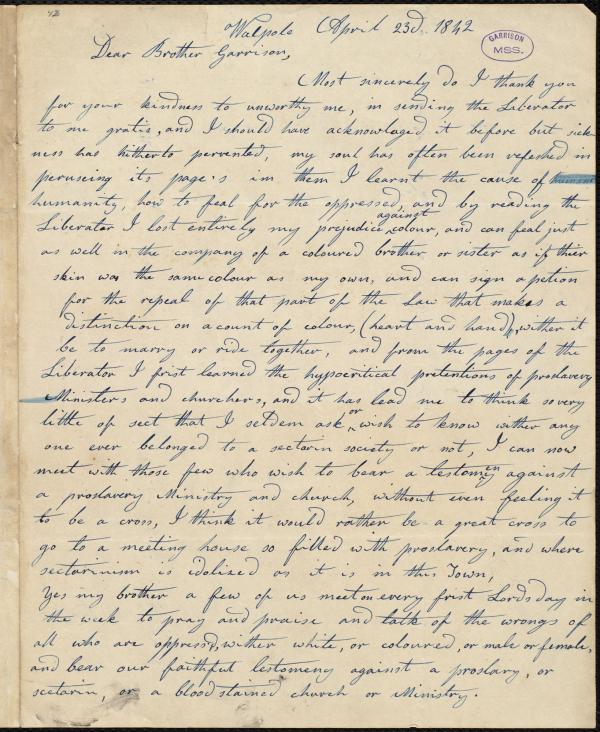 Walpole April 23d. 1842
GARRISON
MSS.
Dear Brother Garrison,
Most sincerely do I thank you
for your kindness to unworthy me, in sending the Liberator
to me gratis, and I should have acknowlaged it before but sick-
ness has hitherto pervented, my soul has often been refeshed in
peruseing its page's im them I learnt the cause of human
humanity, how to feal for the oppressed, and by reading the
Liberator I lost entirely my prejudice against colour, and can feal just
as well in the company of a coloured brother or sister as if thier
skin was the same colour as my own, and can sign a petion
for the repeal of that part of the Law that makes a
distinction on acount of colour, (heart and hand), wither it
be to marry or ride together, and from the pages of the
Liberator I frist learned the hypocritical pretentions of proslavery
Ministers and churchers, and it has lead me to think so very
little of sect that I seldem ask or wish to know wither any
one ever belonged to a sectarin society or not, I can now
meet with those few who wish to bear a testomeny against
a proslavery Ministry and church, without even feeling it
to be a cross, I think it would rather be a great cross to
go to a meeting house so filled with proslavery, and where
sectarinism is idolized as it is in this Town,
Yes my brother a few of us meet on every frist Lords day in
the week to pray and praise and talk of the wrongs of
all who are oppressd, wither white, or coloured, or male or female,
and bear our faithful testomeny against a proslary, or
sectarin, or a blood stained church or Ministry.